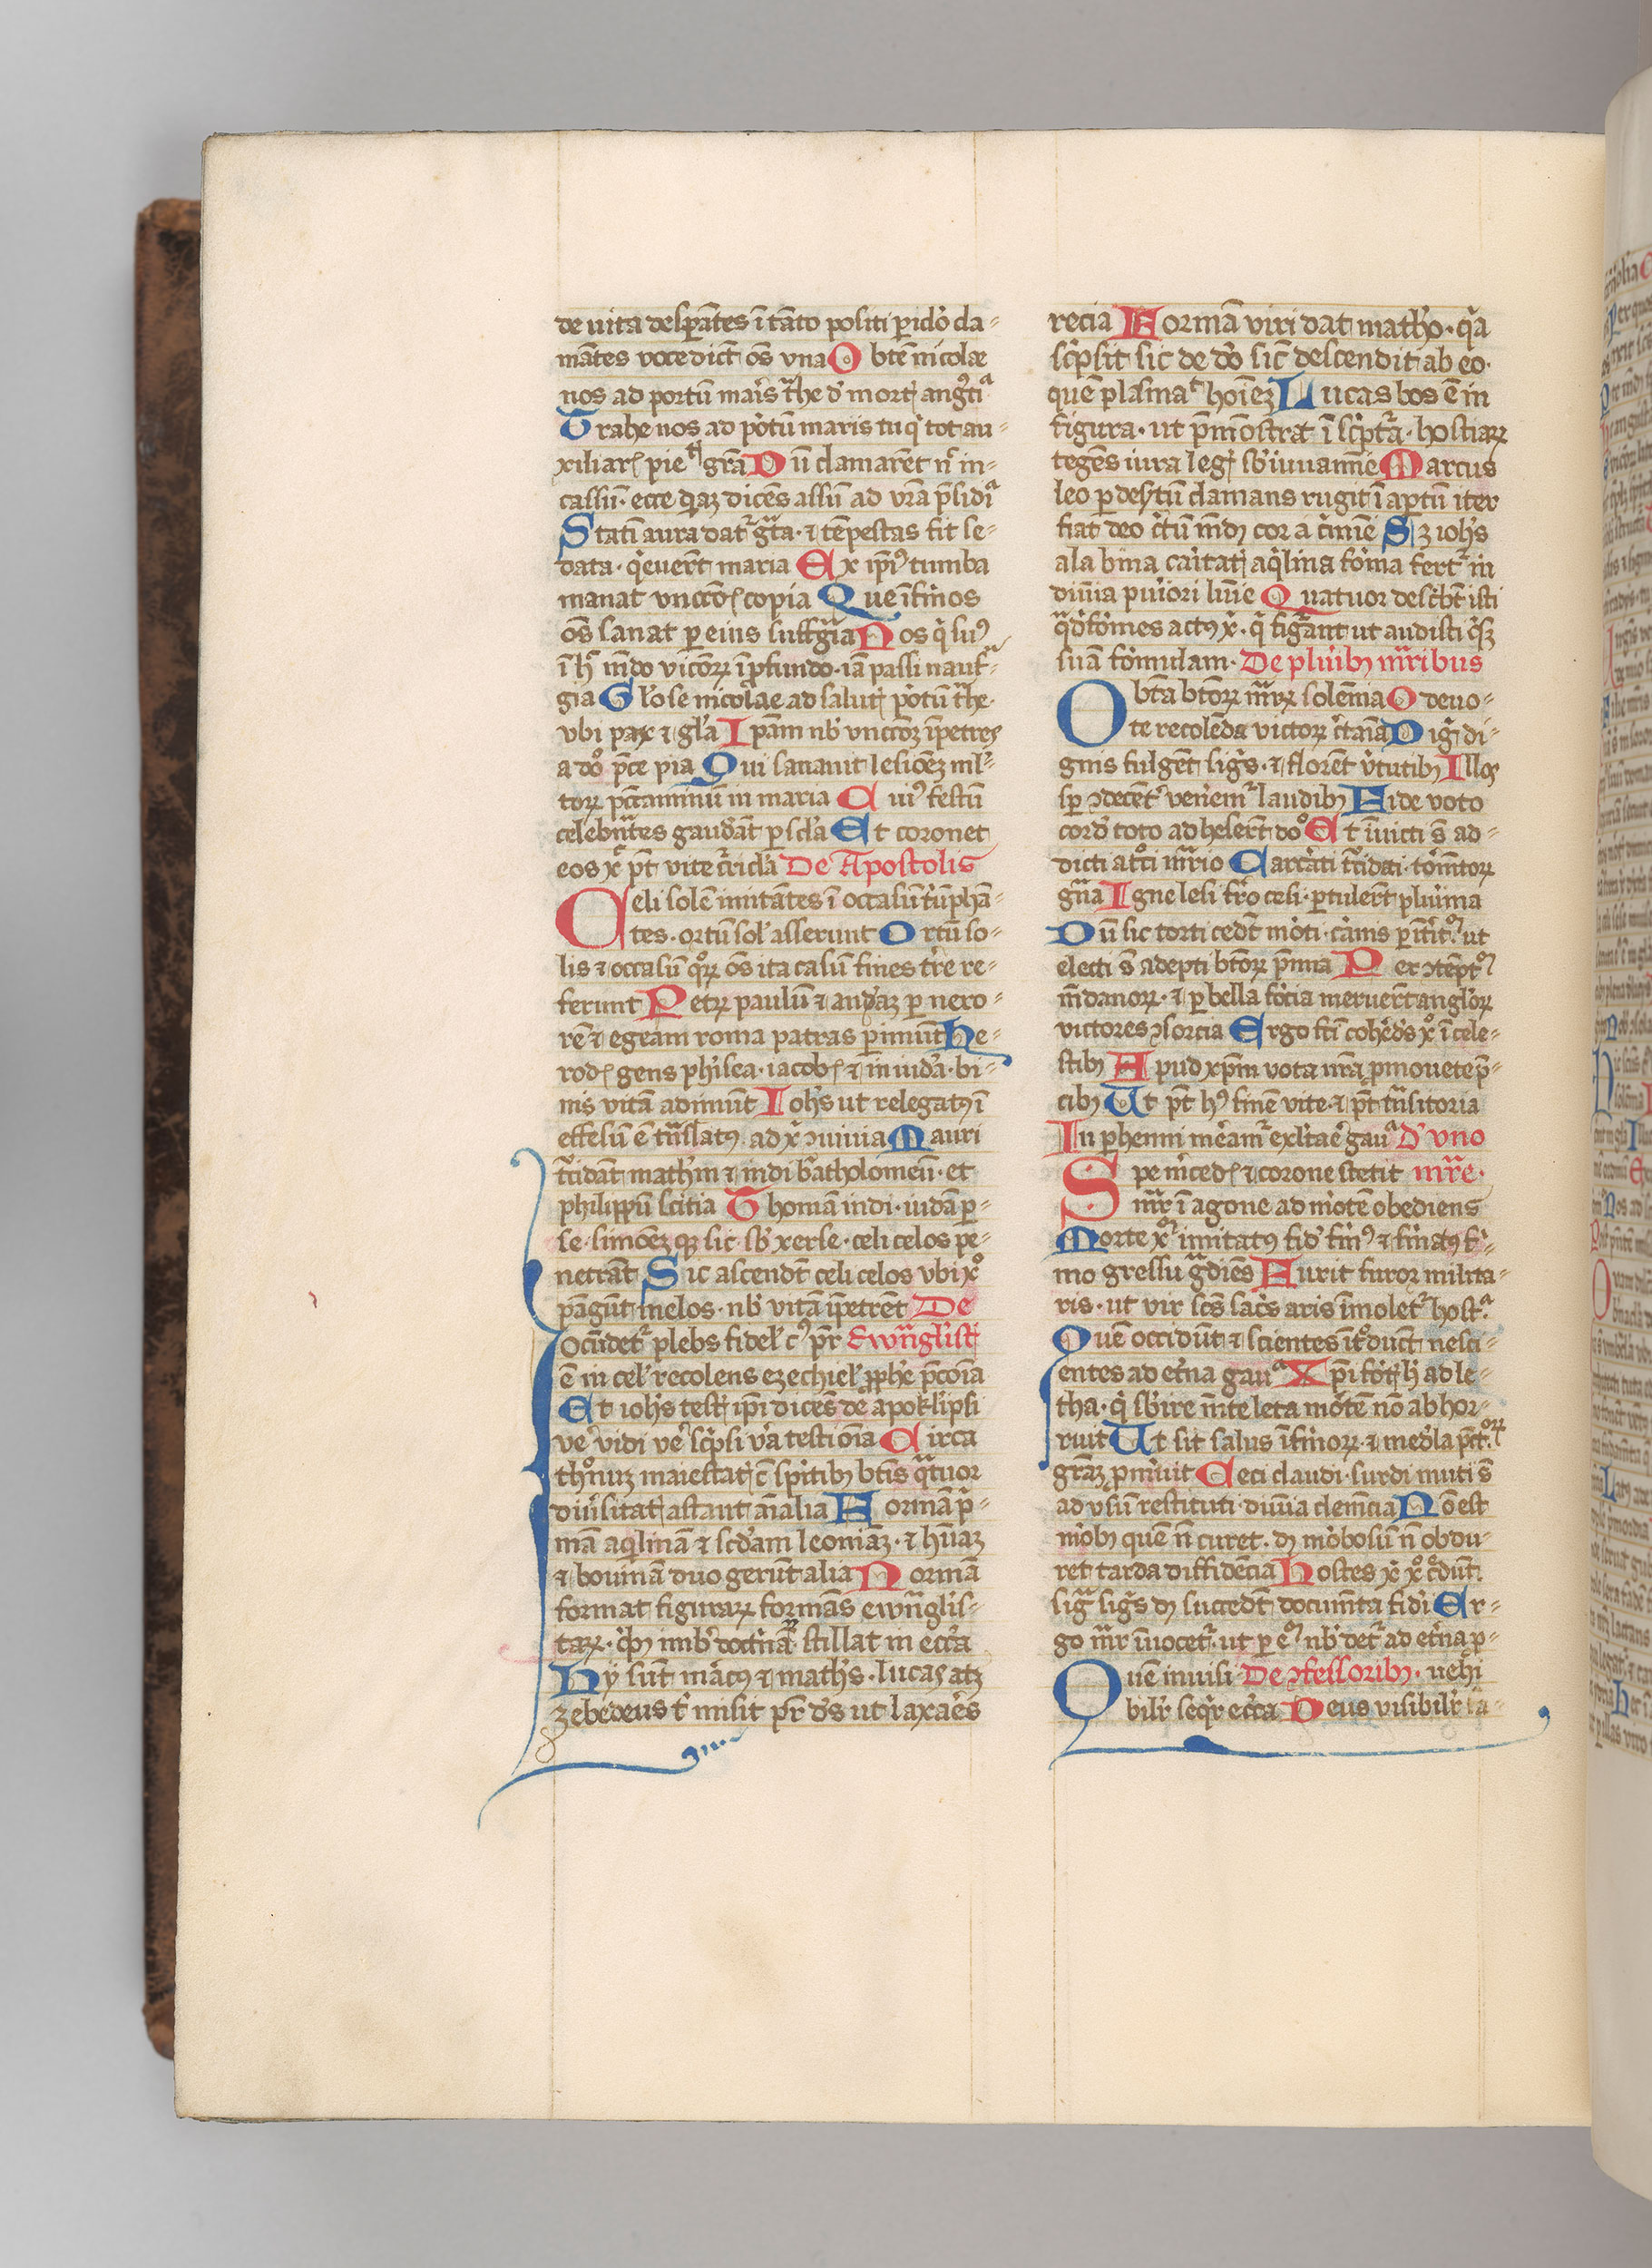 de uita desp̄antes ī tāto positi piclo cla-
mātes voce dict̄ os̄ vna O btē nicolae
nos ad portū mar̉s t̾he d̓ mort̉ ang̓ti
Trahe nos ad portū maris tu q̓ tot au-
xiliar̉ pie grā Dū clamarēt n̄ in-
cassū· ecce q̓daz dicēs assū ad vr̄a p̄sidia
Statī aura dat̉ g̾ta· ⁊ tēpestas fit se-
data· q̓euert̄ maria Ex ip̄i᾽ tumba
manat vnccōis copia Que īfirmos
os̄ sanat p eius suffragia Nos q̓ su᾽
ī h̓ mūdo vicior̄ ī pfundo· iā passi nauf̾-
gia Gl̓ose nicolae ad salut̉ portū t̾he·
vbi pax ⁊ gl̓a Ipam nb̓ vnccōz īpetres
a do᷒ p̄ce pia Qui sanauit lesiōez ml̓-
tor̄ pctaminū in maria Cui᾽ festū
celebrātes gaudāt p scl̓a Et coronet
eos xc̄ pt̄ vite cricl̓a De Apostolis
Celi solē imitātes ī occasū t̓uphā-
tes· ortū sol̓ asserunt Ortū so-
lis ⁊ occasū q̓r̄ os̄ ita casū fines t̓re re-
ferunt Petr̄ paulū ⁊ andr̓az p nero-
rē ⁊ egeam roma patras pimūt He-
rod̓ gens ph̓isea· iacob̓ ⁊ in iud̓a· bi-
nis vitā adimūt Ioh̓s ut relegat᾽ ī
effesū ē tn̄slat᾽ ad xi ↄuiuia Mauri
t̓cidāt math̓m ⁊ indi b̓atholomeū· et
philippū scitia Thomā indi· iudā p-
se· simōez q̄ sic sb̓ xerse· celi celos pe-
netrāt Sic ascendt̄ celi celos vbi xo᷒
pāgūt melos· nb̓ vitā īpetrent De
Iocūdet̉ plebs fidel̓ c᾽ pr̄ Ewāglist̉
ē in cel̓ recolens ezechiel̓ ꝓphe p̄conia
Et ioh̓s test̉ ip̄i dicēs de apok̓lipsi
ve᷒ vidi ve᷒ scp̓si v̓a testiōia Circa
th̓onuz maiestat̉ c̄ sp̄itib᾽ btīs q̾tuor
diu̓sitat̉ astant aīalia Formā p̓-
mā aq̓linā ⁊ scd̓am leoniaz· ⁊ hūaz
⁊ bouinā duo gerunt alia Normā
format figurar̄ formās ewāglis-
tar̄· q̓r᾽ imb̓ doctri̓nar̄ stillat in eccl̓a
Hy sūt mar̓c᾽ ⁊ math̓s· lucas atz
zebedeus t̓ misit pr̄ ds̓ ut laxar̓es
recia Formā viri dat math̓o· q̓a
scp̓sit sic de d̓o sic̓ descendit ab eo·
quē plasmat̓ hoīez Lucas bos ē in
figura· ut p̄mōstrat ī scp̓t̓a· hostiar̄
tegēs iura leg̉ sb̓ iuuamīe Marcus
leo p des̓tū clamans rugit ī aptū iter
fiat deo c̓tū mūd᾽ cor a c̓mīe Sz ioh̓s
ala bina caritat̉ aq̓lina for̓ma fert̉ in
diuina puriori lumīe Quatuor describt̄ isti
q̓d̓for̓mes act᾽ x̓· q̓ figurāt ut audisti q̓sq̓
suā for̓mulam· De plur̓ib᾽ mr̄ibus
O bt̄a btōr̄ mr̄r̄ solēnia O deuo-
te recolēda victor̄ c̓tamia Dign̄ di-
gnis fulgēt sig̓s· ⁊ florēt v̓tutib᾽ Illos
sp̄ ↄdecēt̓ venem̉ laudib᾽ Fide voto
cord̓ toto adheserūt do᷒ Et īuicti s̄ ad-
dicti at̓ci mr̄io Carcāti t̓cidati· tor̓mtor̄
gn̄a Igne lesi ferro cesi· ptulert̄ plurima
Dū sic torti cedt̄ mor̓ti· car̓nis p īt̓it᾽· ut
electi s̄ adepti btōr̄ p̄mia Per ↄtēpt᾽
mūdanor̄· ⁊ p bella for̓cia meruert̄ anglor̄
victores ↄsorcia Ergo fc̄i cohed̓s xo᷒ ī cele-
stib᾽ Apud xpm̄ vota nr̄a ꝓmouete p̄-
cib᾽ Ut pt̄ h᾽ finē vite· ⁊ pt̄ tn̄sitoria
In phenni mer̓eam̉ exl̓tar̓e gau᾽ D̓ vno
Spe mc̓ed̓ ⁊ corone stetit mr̄e·
mr̄ ī agone ad mor̓tē obediens
Morte x᾽ imitat᾽ fid̓ firm᾽ ⁊ firmat᾽ fir̓-
mo gressu g̾dies Furit furor milita-
ris· ut vir scs̄ sac̓s aris īmolet̉ host̓a
Quē occidūt ⁊ scientes it᷒duct̄ nesci-
entes ad et̓na gau᾽ Xp̄i for̓t̉ h̓ ad le-
tha· q̓ sb̓ire mēte leta mor̓tē nō abhor-
ruit Ut sit salus īfir̓mor̄· ⁊ med̓la pct̄or̄
grāz ꝓmruit Ceci claudi· surdi muti s̄
ad vsū restituti· diuīa clemēcia Nō est
mor̓b᾽ quē n̄ curet· d᾽ mor̓bosū n̄ obdu-
ret tarda diffidēcia Hostes xi xo᷒ c̓dūt·
sig̾ sig̓s d᾽ succedt̄ documt̄a fidi̓ Er-
go mr̄ īuocet̉· ut p e᷒ nb̓ det̉ ad et̓na p-
Quē inuisi De ↄfessorib᾽· uehi̓
bilr̓ seq̓r̓ eccl̓a Deus visibilr̓ la-